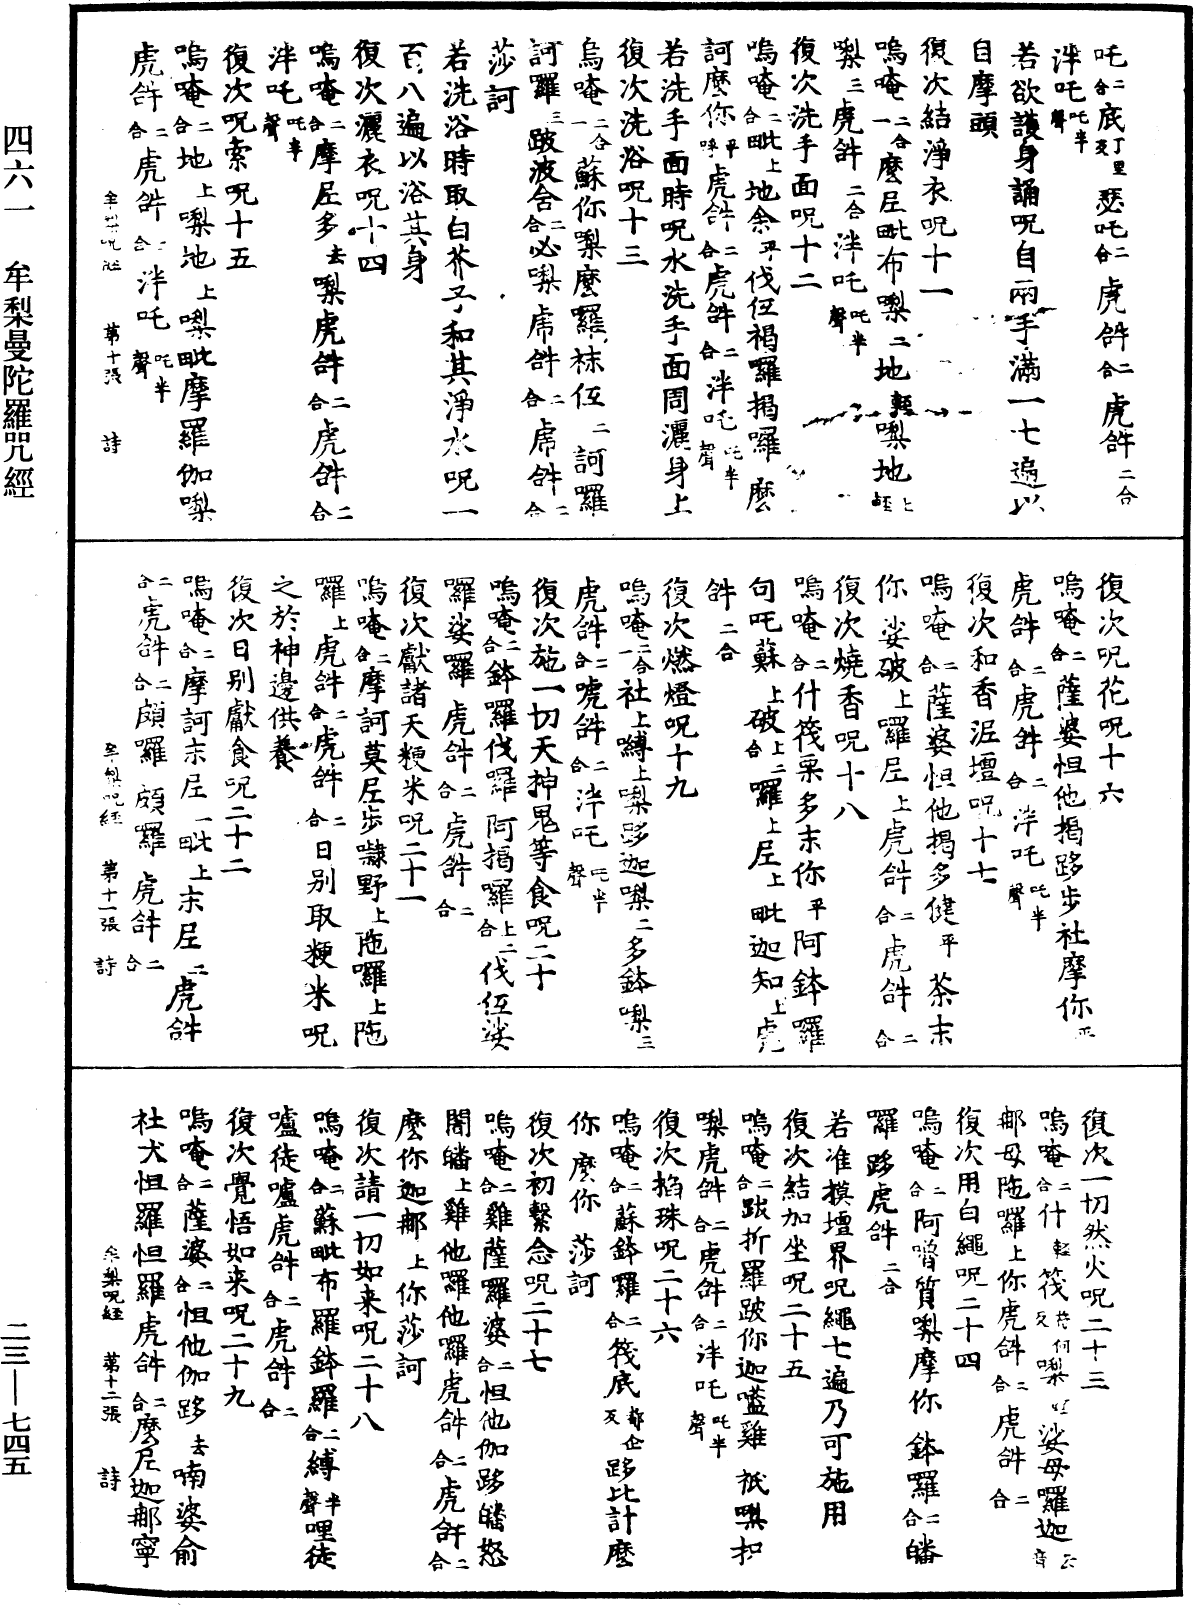 吒二合底丁里反瑟吒二合虎𤙖二合虎𤙖二合
泮吒吒半聲
若欲護身誦呪自兩手滿一七遍以
自摩頭
復次結淨衣呪十一
嗚唵二合一麼尼毗布㗚二地輕㗚地
㗚三虎𤙖二合泮吒吒半聲
復次洗手面呪十二
嗚唵二合毗上地余平伐侸褐囉揭囉麼
訶麼你平虎𤙖二合虎𤙖二合泮吒吒半聲
若洗手面時呪水洗手面周灑身上
復次洗浴呪十三
烏唵二合一蘇你㗚麼羅袜侸二訶羅
訶羅三跛波舍二合必㗚虎𤙖二合虎𤙖二合
莎訶
若洗浴時取白芥子和其淨水呪一
百八遍以浴其身
復次灑衣呪十四
嗚唵二合摩尼多去㗚虎𤙖二合虎𤙖二合
泮吒吒半聲
復次呪索呪十五
嗚唵二合地上㗚地上㗚毗摩羅伽㗚
虎𤙖二合虎𤙖二合泮吒吒半聲
牟㗚呪經　第十張　詩
復次呪花呪十六
嗚唵二合薩婆怛他揭跢步社摩你平
虎𤙖二合虎𤙖二合泮吒吒半聲
復次和香泥壇呪十七
嗚唵二合薩婆怛他揭多健平茶末
你娑破上囉尼上虎𤙖二合虎𤙖二合
復次燒香呪十八
嗚唵二合什筏栗多末你平阿鉢囉
句吒蘇上破上二合囉上尼上毗迦知上虎
𤙖二合
復次燃燈呪十九
嗚唵二合一社上縛上㗚跢迦㗚二多鉢㗚三
虎𤙖二合唬𤙖二合泮吒吒半聲
復次施一切天神鬼等食呪二十
嗚唵二合鉢羅伐羅阿揭囉上二合伐侸娑
羅娑羅虎𤙖二合虎𤙖二合
復次獻諸天粳米呪二十一
嗚唵二合摩訶莫尼步㘑野上陁囉上陁
羅上虎𤙖二合虎𤙖二合日別取粳米呪
之於神邊供養
復次日別獻食呪二十二
嗚唵二合摩訶末尼一毗上末尼二虎𤙖
二合虎𤙖二合頗羅頗羅虎𤙖二合
牟㗚呪經　第十一張　詩
復次一切然火呪二十三
嗚唵二合什輕筏符何反㗚娑母囉迦去音
那母陁囉上你虎𤙖二合虎𤙖二合
復次用白繩呪二十四
嗚唵二合阿嚕質㗚摩你鉢羅二合皤
羅跢虎𤙖二合
若准摸壇界呪繩七遍乃可施用
復次結加坐呪二十五
嗚唵二合跋折羅跛你迦嗌雞祇㗚扣
㗚虎𤙖二合虎𤙖二合泮吒吒半聲
復次掐珠呪二十六
嗚唵二合蘇鉢羅二合筏底都企反跢比計麼
你麼你莎訶
復次初繫念呪二十七
嗚唵二合雞薩羅婆二合怛他伽跢皤怒
闍皤上雞他囉他羅虎𤙖二合虎𤙖二合
麼你迦那上你莎訶
復次請一切如来呪二十八
嗚唵二合蘇毗布羅鉢羅二合縛半聲哩徒
嚧徒嚧虎𤙖二合虎𤙖二合
復次覺悟如来呪二十九
嗚唵二合薩婆二合怛他伽跢去喃娑俞
社犬怛羅怛羅虎𤙖二合麼尼迦那寧
牟㗚呪經　第十二張　詩
四六一　牟梨曼陀羅咒經
二三—七四五